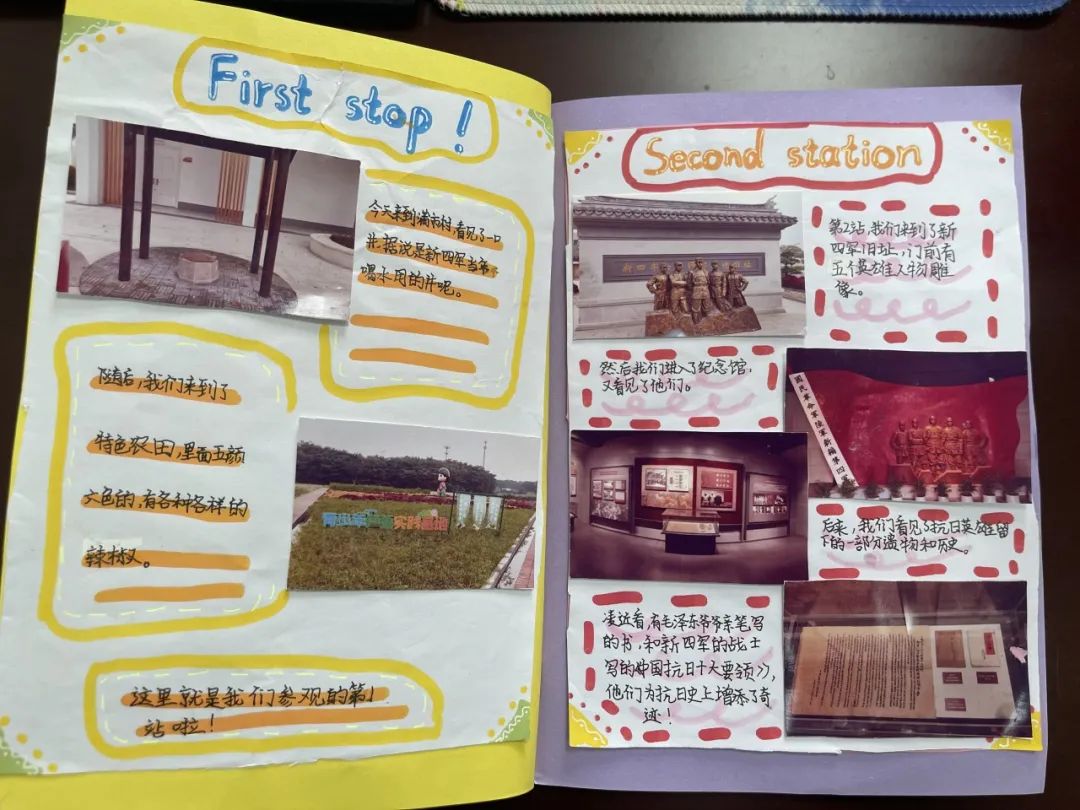 First stop！
今天来到满市村,看见了一口
井,据说是新四军当年
喝水用的井呢。
随后,我们来到了
特色农田,里面五颜
六色的,有各种各样的
辣椒。
实践基地
这里就是我们参观的第1
站啦！
Second station
第2站,我们来到了新
四军旧址,门前有
五个英雄人物雕
像。
新四军
旧址
然后我们进入了纪念馆,
又看见了他们。
國民革命軍陸軍新編第四
后来,我们看见了抗日英雄留
下的一部分遗物和历史。
凑近看,有毛泽东爷爷亲笔写
的书,和新四军的战士
写的《中国抗日十大要领》,
他们为抗日史上增添了奇
迹！